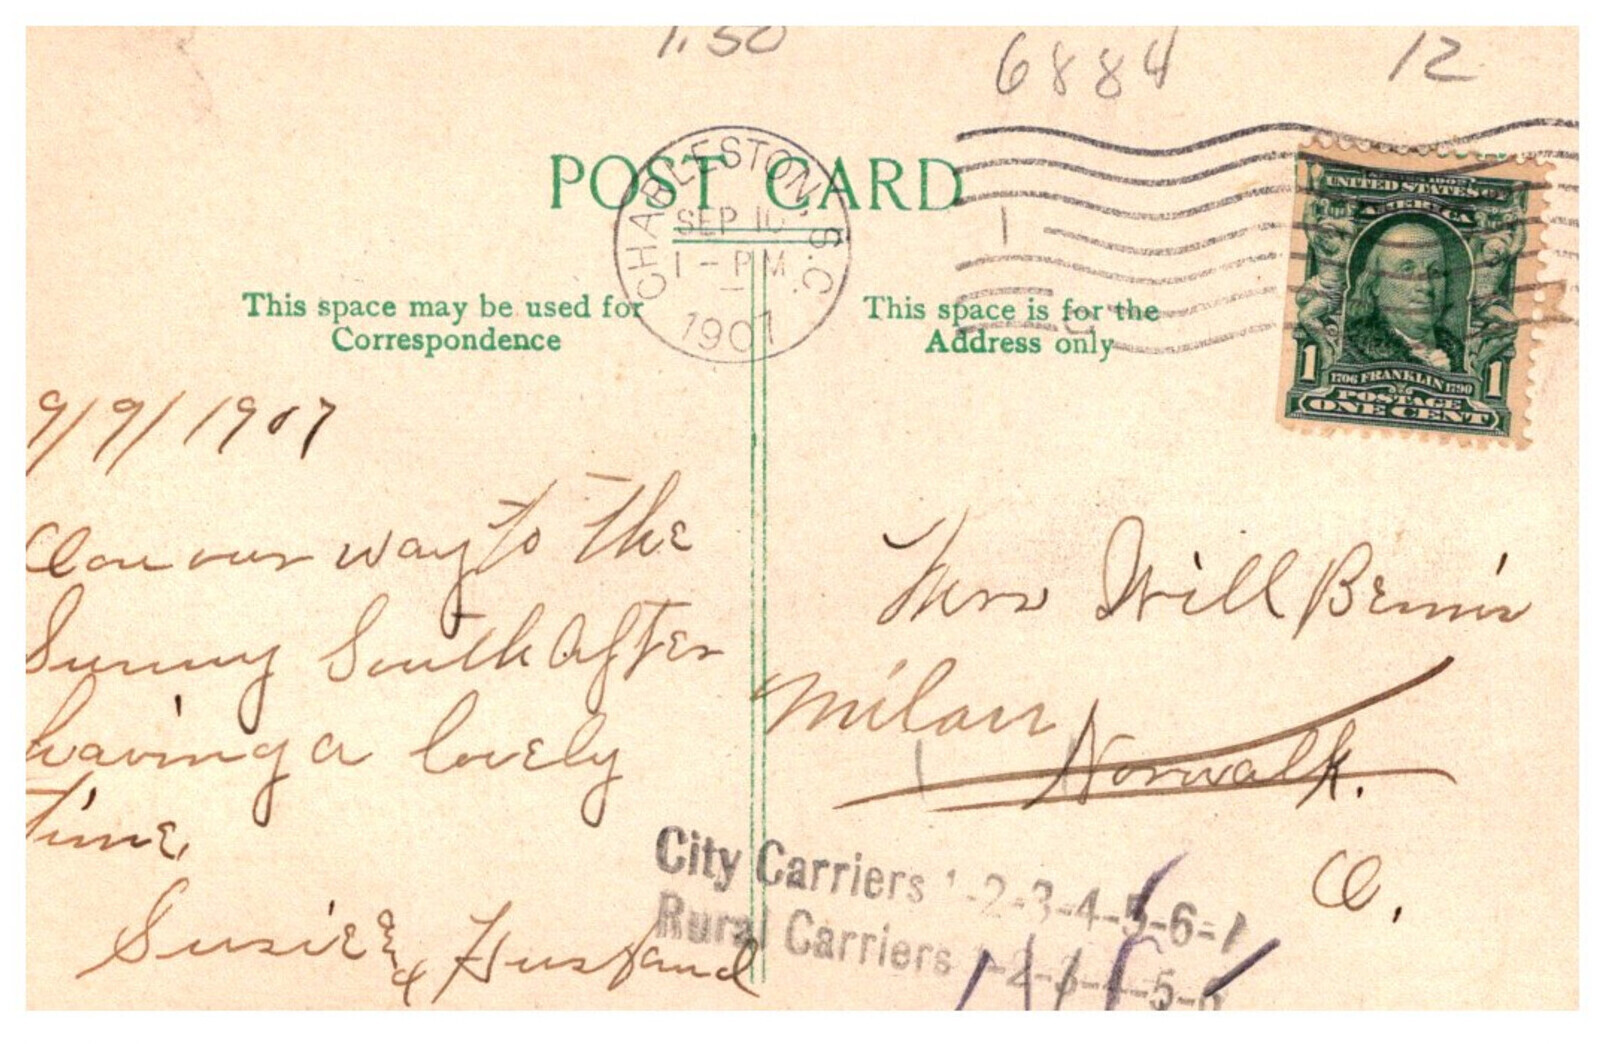 1.50
6884
12
POST CARD
CHARLESTON, S.C.
SEP 10
1-PM
1907
SERIES 1902
UNITED STATES OF
AMERICA
1 1
1706 FRANKLIN 1790
POSTAGE
ONE CENT
This space may be used for
Correspondence
This space is for the
Address only
9/9/1907
on our way to the
Sunny South after
having a lovely
time.
Susie and Husband
Mrs Will Bemis
Milan
Norwalk.
O.
City Carriers 1-2-3-4-5-6-7
Rural Carriers 1-2-3-4-5-6